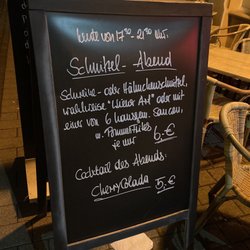 heute von 17⁰⁰ - 21⁰⁰ Uhr.
Schnitzel - Abend
Schweine- oder Hähnchenschnitzel,
wahlweise "Wiener Art" oder mit
einer von 6 hausgem. Saucen,
u. Pommes Frites
je nur 6,- €
Cocktail des Abends:
Cherry Colada 5,- €